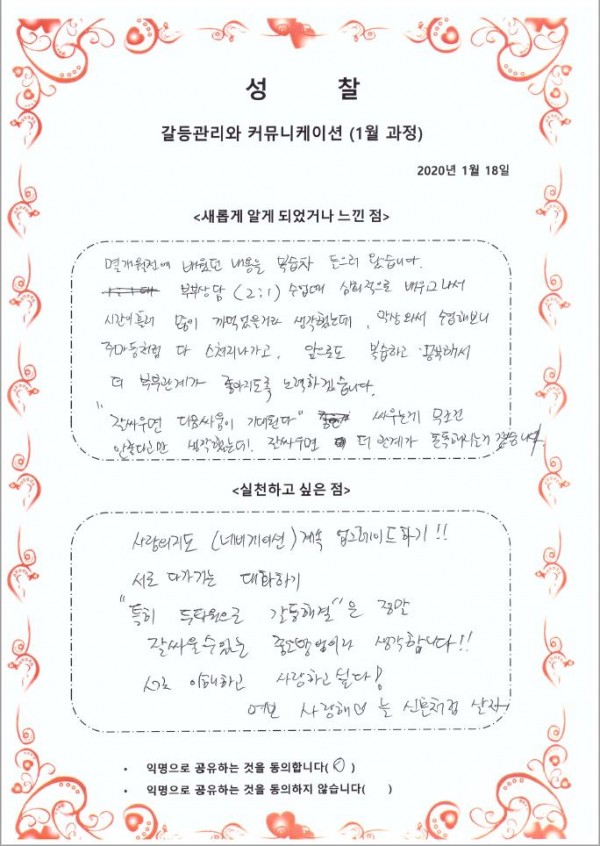 성 찰
갈등관리와 커뮤니케이션 (1월 과정)
2020년 1월 18일
<새롭게 알게 되었거나 느낀 점>
몇개월전에 배웠던 내용을 복습차 들으러 왔습니다.
부부상담 (2:1) 수업때 심리적으로 배우고 나서
시간이 흘러 많이 까먹었을거라 생각했는데, 막상와서 수업해보니
주마등처럼 다 스쳐지나가고, 앞으로도 복습하고 공부해서
더 부부관계가 좋아지도록 노력하겠습니다.
"잘싸우면 다음싸움이 기대된다" 싸우는게 무조건
안좋다고만 생각했는데! 잘싸우면 더 관계가 돈독해지는거 같습니다.
<실천하고 싶은 점>
사랑의지도 (네비게이션) 계속 업그레이드하기!!
서로 다가가는 대화하기
"특히 두타원으로 갈등해결"은 정말
잘싸울수있는 좋은방법이라 생각합니다!!
서로 이해하고 사랑하고싶다!
여보 사랑해♡ 늘 신혼처럼 살자
• 익명으로 공유하는 것을 동의합니다( O )
• 익명으로 공유하는 것을 동의하지 않습니다( )